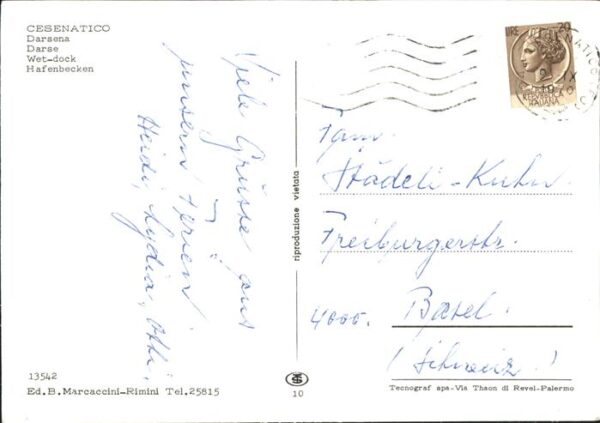 CESENATICO
Darsena
Darse
Wet-dock
Hafenbecken
Viele Grüsse aus
unsern Ferien
Heidi, Lydia, Otti.
riproduzione vietata
LIRE 20
REPUBBLICA
ITALIANA
Fam.
Städeli-Kuhn.
Freiburgerstr.
4000. Basel.
(Schweiz)
13542
Ed.B.Marcaccini-Rimini Tel.25815
10
Tecnograf spa-Via Thaon di Revel-Palermo